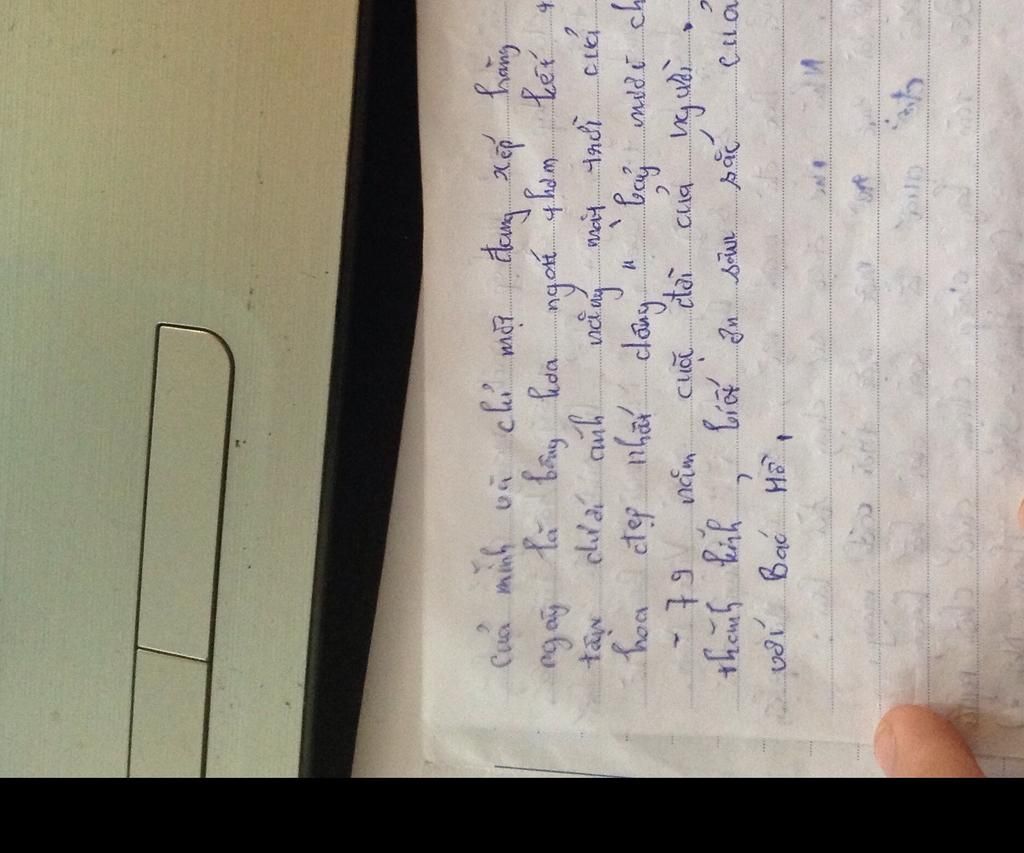 của mình và chỉ một đang xếp hàng
ngày là bông hoa ngát thơm kết
tận dưới ánh nắng mặt trời của
hoa đẹp nhất dâng " bảy mươi ch
- 79 năm cuộc đời của người.
thành kính, biết ơn sâu sắc của
với Bác Hồ.